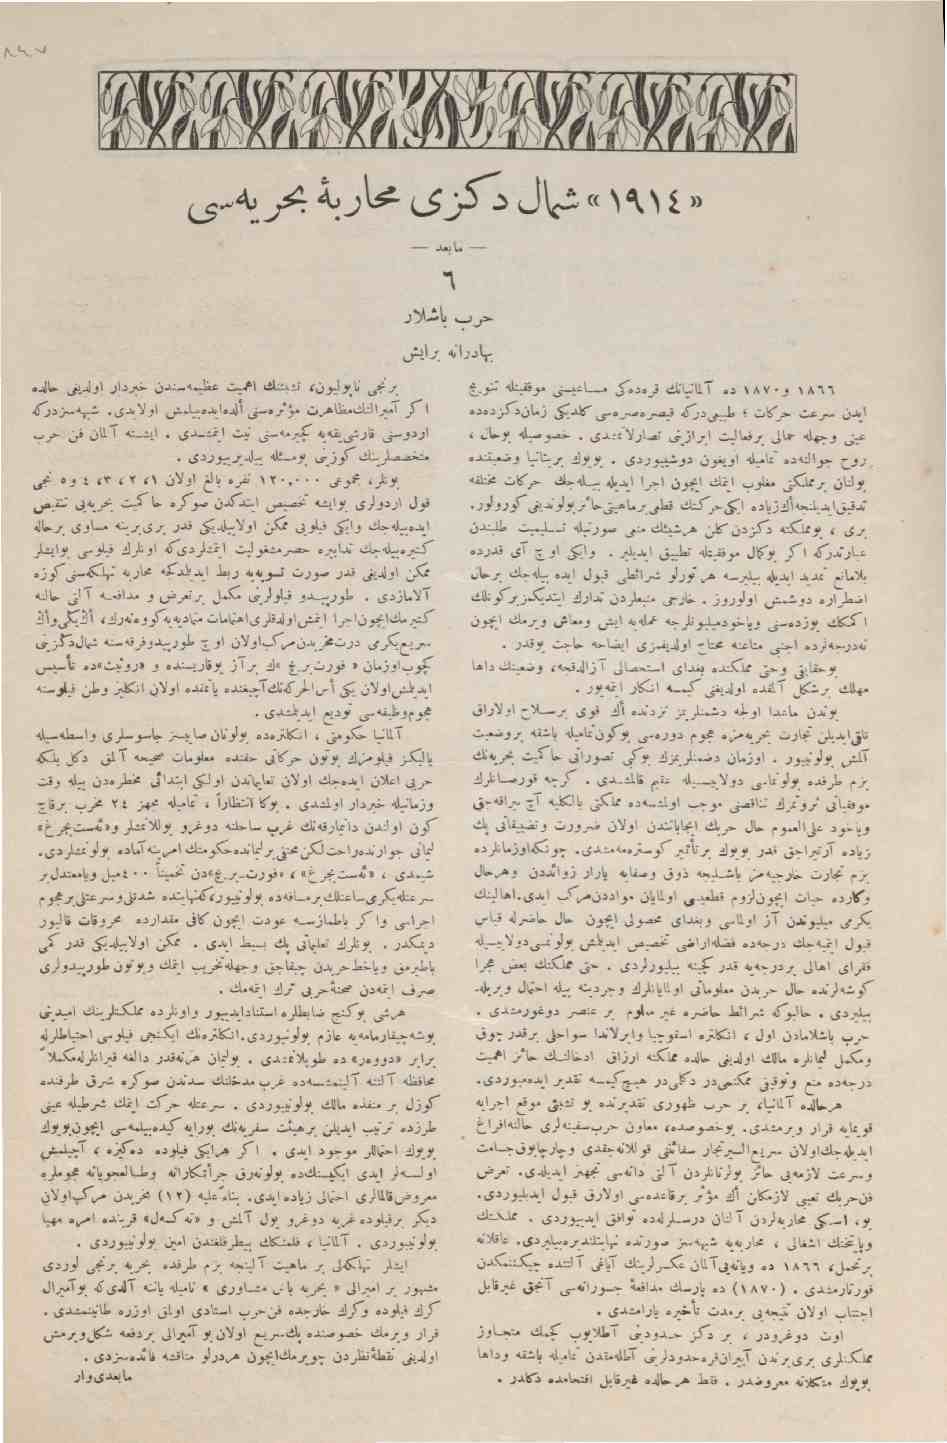 «١٩١٤» شمال دكزی محاربهٔ بحریه‌سی
— مابعد —
٦
حرب باشلار
بهادرانه برایش
١٨٦٦ و ١٨٧٠ ده آلمانیانك قره‌ده‌كی مساعیسنی موفقیتله تتویج
ایدن سرعت حركات ؛ طبیعی‌دركه قیصره‌صره‌سی كلدیكی زمان‌دكزده‌ده
عینی وجهله حمالی برفعالیت ابرازینی تصارلاتمشدی . خصوصیله بوحال ،
روح جوالنه‌ده تمامیله اویغون دوشیوردی . بویوك بریتانیا وضعیتنده
بولنان برمملكتی مغلوب ایتمك ایچون اجرا ایدیله بیله‌جك حركات مختلفه
تدقیق‌ایدیلنجه‌اك‌زیاده ایكی‌حركتك قطعی‌برماهیتی‌حائز بولوندیغی كورولور.
بری ، بومملكته دكزدن كلن هرشیئك منعی صورتیله تسلیمیت طلبندن
عبارتدركه اكر بوكمال موفقیتله تطبیق ایدیلیر . وایكی اوچ آی قدرده
بلامانع تمدید ایدیله بیلیرسه هرتورلو شرائطی قبول ایده بیله‌جك برحال
اضطراره دوشمش اولوروز . خارجی منبعلردن تدارك ایتدیكمز بركونلك
اكمكك یوزده‌سنی ویاخودمیلیونلرجه عمله‌یه ایش ومعاش ویرمك ایچون
نه‌درجه‌لرده اجنبی متاعنه محتاج اولدیغمزی ایضاحه حاجت یوقدر .
بوحقایق وحتی مملكتده بغدای استحصالی آزالدقجه، وضعیتك داها
مهلك برشكل آلمقده اولدیغی كیمسه انكار ایتمه‌یور .
بوندن ماعدا اولجه دشمنلریمز نزدنده اك قوی برسلاح اولارق
تلقی‌ایدیلن تجارت بحریه‌مزه هجوم دوره‌سی بوكون‌تمامیله باشقه بروضعیت
آلمش بولونیور . اوزمان دشمنلریمزك بوكی تصوراتی حاكمیت بحریه‌نك
بزم طرفده بولونماسی دولاییسیله عقیم قالمشدی . كرچه قورصانلرك
موفقیاتی ثروتمزك تناقصنی موجب اولمشسه‌ده مملكتی بالكلیه آچ بیراقه‌جق
ویاخود علی‌العموم حال حربك ایجاباتندن اولان ضرورت وتضییقاتی پك
زیاده آرتیراجق قدر بویوك برتأثیر كوسترمه‌مشدی . چونكه‌اوزمانلرده
بزم تجارت خارجیه‌مز باشلیجه ذوق وصفایه یارار زوائددن وهرحال
وكارده حیات ایچون‌لزوم قطعیسی اولمایان موادّدن‌مركب ایدی.اهالینك
یكرمی میلیوندن آز اولماسی وبغدای محصولی ایچون حال حاضرله قیاس
قبول ایتمیه‌جك درجه‌ده فضله‌اراضی تخصیص ایدیلمش بولونمسی‌دولاییسیله
فقرای اهالی بردرجه‌یه قدر كچینه بیلیورلردی . حتی مملكتك بعض مجرا
كوشه‌لرنده حال حربدن معلوماتی اولمایانلرك وجودینه بیله احتمال ویریله‌
بیلیردی . حالبوكه شرائط حاضره غیر معلوم بر عنصر دوغورمشدی .
حرب باشلامادن اول ، انكلتره اسقوچیا وایرلاندا سواحلی برقدر چوق
ومكمل لیمانلره مالك اولدیغی حالده مملكته ارزاق ادخالنك حائز اهمیت
درجه‌ده منع وتوقیفی ممكنمی‌در دكلمی‌در هیچ‌كیمسه تقدیر ایده‌میوردی.
هرحالده آلمانیا، بر حرب ظهوری تقدیرنده بو تشبثی موقع اجرایه
قویمایه قرار ویرمشدی. بوخصوصده، معاون حرب‌سفینه‌لری حالنه‌افراغ
ایدیله‌جك‌اولان سریع‌السیرتجار سفائنی قوللانه‌جقدی وچارچابوق‌جسامت
وسرعت لازمه‌یی حائز بولونانلردن آلتی دانه‌سی تجهیز ایدیلدی. تعرض
فن‌حربك تعیینی لازمكلن اك مؤثر برقاعده‌سی اولارق قبول ایدیلیوردی.
بو، اسكی محاربه‌لردن آلنان درسلرله‌ده توافق ایدییوردی . مملكتك
وپایتختك اشغالی ، محاربه‌یه شبهه‌سز صورتده نهایت‌ویره‌بیلیردی. عاقلانه
برتحمل، ١٨٦٦ ده ویانه‌یی‌آلمان عسكرلرینك آیاغی آلتنده چیكنتمكدن
قورتارمشدی . (١٨٧٠) ده پارسك مدافعهٔ جسورانه‌سی آنجق غیرقابل
اجتناب اولان نتیجه‌یی برمدت تأخیره یارامشدی .
اوت دوغرودر ، بر دكز حدودینی آطلایوب كچمك متجاوز
مملكتلری بری‌برندن آییران‌قره‌حدودلرینی آطله‌مقدن تمامیله باشقه وداها
بویوك مشكلاته معروضدر . فقط هرحالده غیرقابل اقتحامده دكلدر .
برنجی ناپولیون، تشبثنك اهمیت عظیمه‌سندن خبردار اولدیغی حالده
اكر آمیرالنك‌مظاهرت مؤثره‌سنی الده‌ایده‌بیلمش اولایدی. شبهه‌سزدركه
اردوسنی قارشی‌یقه‌یه كچیرمه‌سنی نیت ایتمشدی . ایشته آلمان فن حرب
متخصصلرینك كوزینی بومسئله ییلدیریوردی .
بونلر، مجموعی ١٢٠,٠٠٠ نفره بالغ اولان ١، ٢ ، ٣، ٤ و ٥ نجی
قول اردولری بوایشه تخصیص ایتدكدن صوكره حاكمیت بحریه‌یی تنقیص
ایده‌بیله‌جك وایكی فیلویی ممكن اولابیلدیكی قدر بری‌برینه مساوی برحاله
كتیره‌بیله‌جك تدابیره حصرمشغولیت ایتمشلردی‌كه اونلرك فیلوسی بوایشلر
ممكن اولدیغی قدر صورت تسویه‌یه ربط ایدیلدكجه محاربه تهلكه‌سنی كوزه
آلامازدی . طورپیدو فیلولرینی مكمل برتعرض و مدافعه آلتی حالنه
كتیرمك‌ایچون‌اجرا ایتمش‌اولدقلری‌اهتمامات متمادیه‌یه‌كووه‌نه‌رك، اك‌یكی‌واك
سریع‌یكرمی درت‌مخربدن‌مركب‌اولان اوچ طورپیدوفرقه‌سنه شمال‌دكزینی
كچوب‌اوزمان « فورت‌بریج »ك بر آز یوقاریسنده و «روثیت»ده تأسیس
ایدیلمش‌اولان یكی أس‌الحركه‌نك‌آچیغنده یاتمقده اولان انكلیز وطن فیلوسنه
هجوم‌وظیفه‌سی تودیع ایدیلمشدی .
آلمانیا حكومتی ، انكلتره‌ده بولونان صاییسز جاسوسلری واسطه‌سیله
یالیكز فیلومزك بوتون حركاتی حقنده معلومات صحیحه آلمق دكل بلكه
حربی اعلان ایده‌جك اولان تعلیماتدن اولكی ابتدائی مخطره‌دن بیله وقت
وزمانیله خبردار اولمشدی . بوكا انتظاراً ، تمامیله مجهز ٢٤ مخرب برقاچ
كون اولندن دانیمارقه‌نك غرب ساحلنه دوغرو یوللانمشلر و«ئه‌ست‌بجرغ»
لیمانی جوارنده‌راحت‌لكن‌مختفی‌برلیمانده‌حكومتك امرینه‌آماده بولونمشلردی.
شیمدی ، «ئه‌ست‌بجرغ»، «فورت‌بریج»دن تخمیناً ٤٠٠میل ویامعتدل‌بر
سرعتله‌یكرمی‌ساعتلك‌برمسافه‌ده بولونییور،كه‌نهایتده شدتلی‌وسرعتلی‌برهجوم
اجراسی واكر باطمازسه عودت ایچون كافی مقدارده محروقات قالییور
دیمكدر . بونلرك تعلیماتی پك بسیط ایدی . ممكن اولابیلدیكی قدر كمی
باطیرمق ویاخط‌حربدن چیقاجق وجهله‌تخریب ایتمك وبوتون طورپیدولری
صرف ایتمه‌دن صحنهٔ‌حربی ترك ایتمه‌مك .
هرشی بوكنج ضابطلره استنادایدییور واونلرده مملكتلرینك امیدینی
بوشه‌چیقارمامه‌یه عازم بولونیوردی.انكلتره‌نك ایكنجی فیلوسی احتیاطلرله
برابر «دووه‌ر»ده طوپلانمشدی . بولیمان هرنه‌قدر دالغه قیرانلرله‌مكملاً
محافظه آلتنه آلینمشسه‌ده غرب مدخلنك سدندن صوكره شرق طرفنده
كوزل بر منفذه مالك بولونییوردی . سرعتله حركت ایتمك شرطیله عینی
طرزده ترتیب ایدیلن برهیئت سفریه‌نك بورایه كیده‌بیلمه‌سی ایچون‌بویوك
بویوك احتماللر موجود ایدی . اكر هرایكی فیلوده ده‌كیزه ، آچیلمش
اولسه‌لر ایدی ایكیسنك‌ده بولونه‌رق جرأتكارانه وطالعجویانه هجوملره
معروض‌قالمالری احتمالی زیاده‌ایدی. بناءً علیه (١٢) مخربدن مركب‌اولان
دیكر برفیلوده غربه دوغرو یول آلمش و «ته‌كسه‌ل» قربنده امره مهیا
بولونیوردی . آلمانیا ، فلمنكك بیطرفلغندن امین بولونییوردی .
ایشلر تهلكه‌لی بر ماهیت آلینجه بزم طرفده بحریه برنجی لوردی
مشهور بر امیرالی « بحریه باش مشاوری » نامیله یاننه آلدی‌كه بوآمیرال
كرك فیلوده وكرك خارجده فن‌حرب استادی اولمق اوزره طانینمشدی .
قرار ویرمك خصوصنده پك‌سریع اولان‌بو آمیرالی بردفعه شكل‌ویرمش
اولدیغی نقطهٔ‌نظردن چویرمك‌ایچون هردرلو مناقشه فائده‌سزدی .
مابعدی‌وار